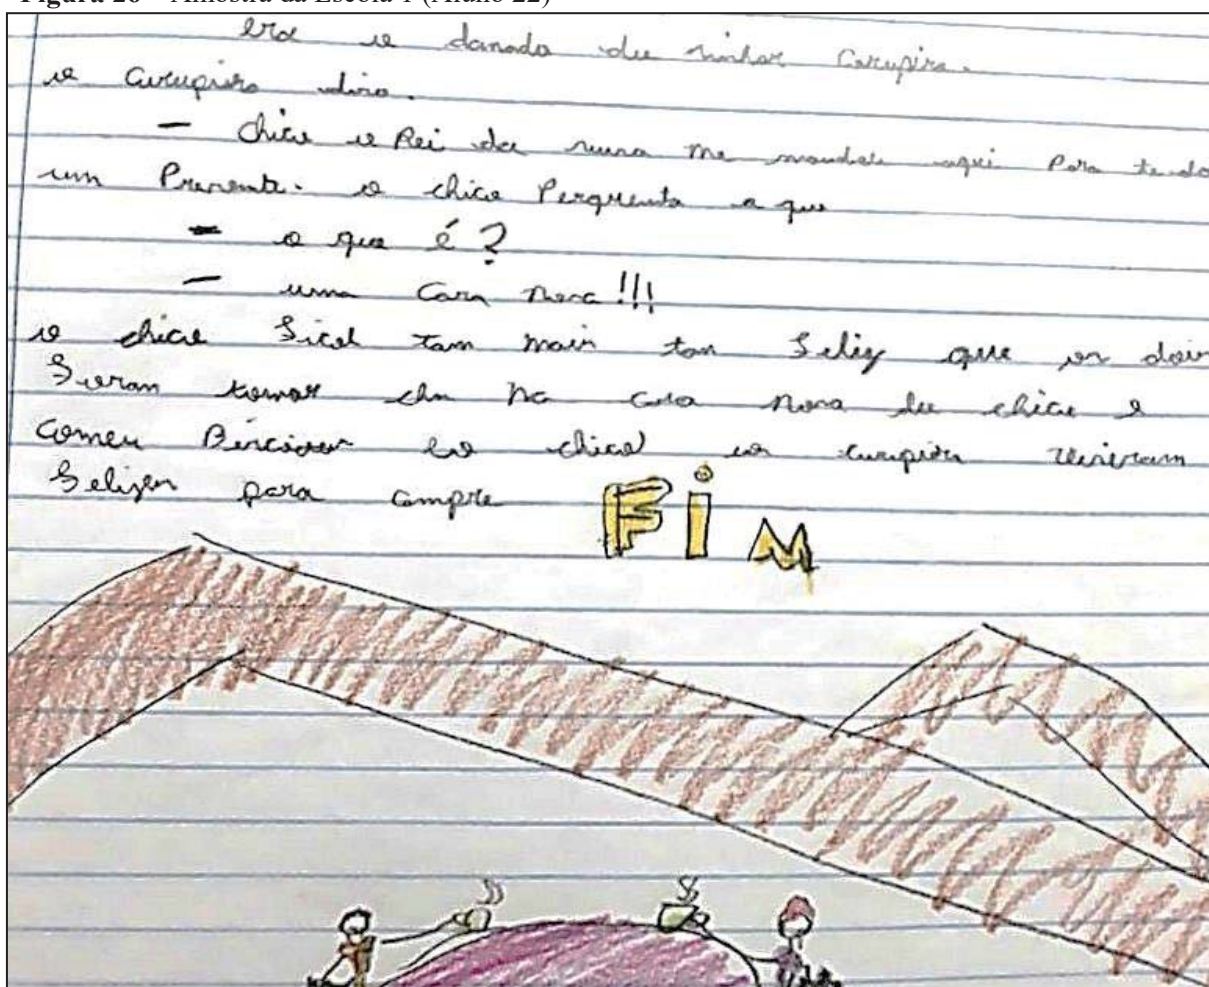 Figura 26 – Amostra da Escola 1 (Aluno 22)
era o danado du sinhor Curupira.
o Curupira disse.
– chico o Rei da me mandou aqui Para te da
um Presente. o chico Pergunta o que
– o que é?
– uma Casa nova!!!
o chico Ficol tam mais tan Feliz que os dois
Foram tomar cha na casa nova du chico e
comeu Biscoito eo chico eo curupira viveram
Felizes para campre
FiM